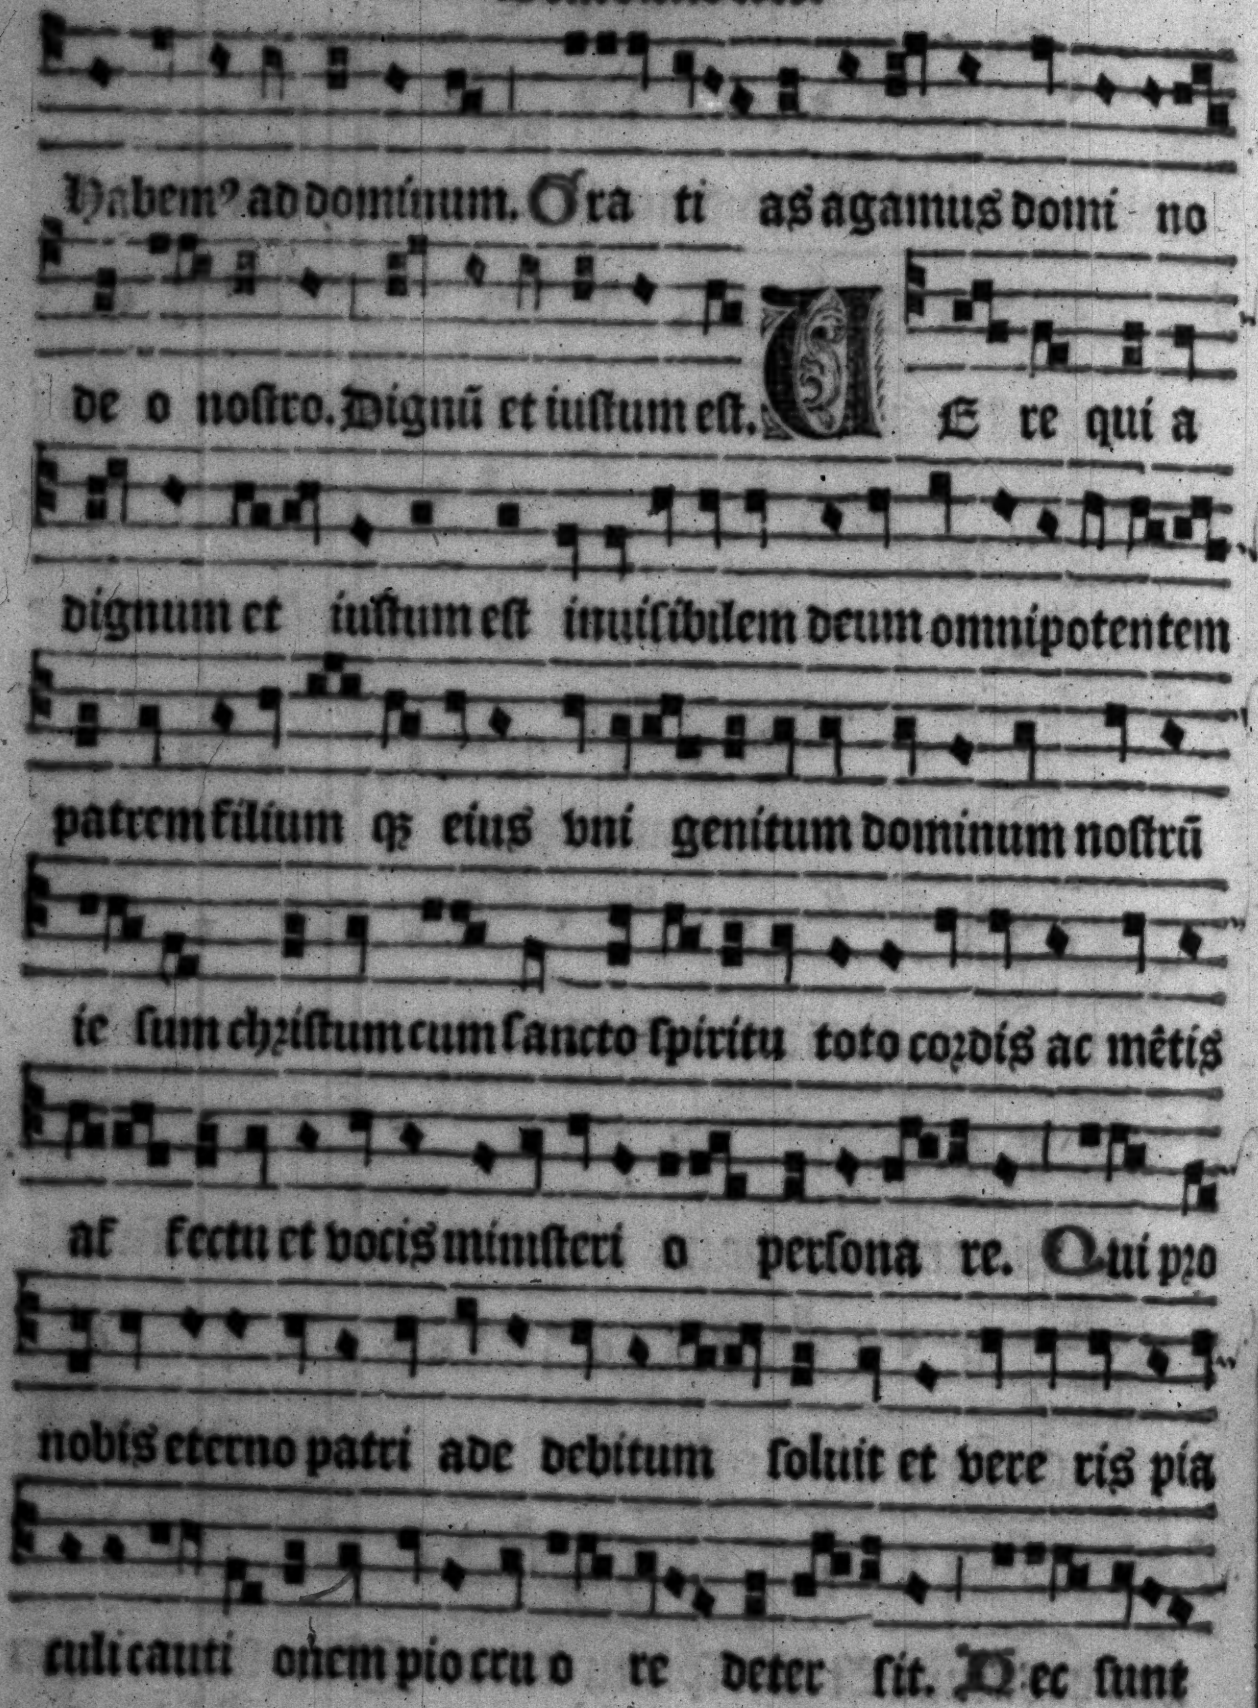 Habemꝰ ad dominum. Gra ti as agamus domi no
de o nostro. Dignū et iustum est. U E re qui a
dignum et iustum est inuisibilem deum omnipotentem
patrem filium qꝫ eius vni genitum dominum nostrū
ie sum christum cum sancto spiritu toto cordis ac mētis
af fectu et vocis ministeri o persona re. Qui pro
nobis eterno patri ade debitum soluit et vere ris pia
culi cauti onem pio cru o re deter sit. Nec sunt